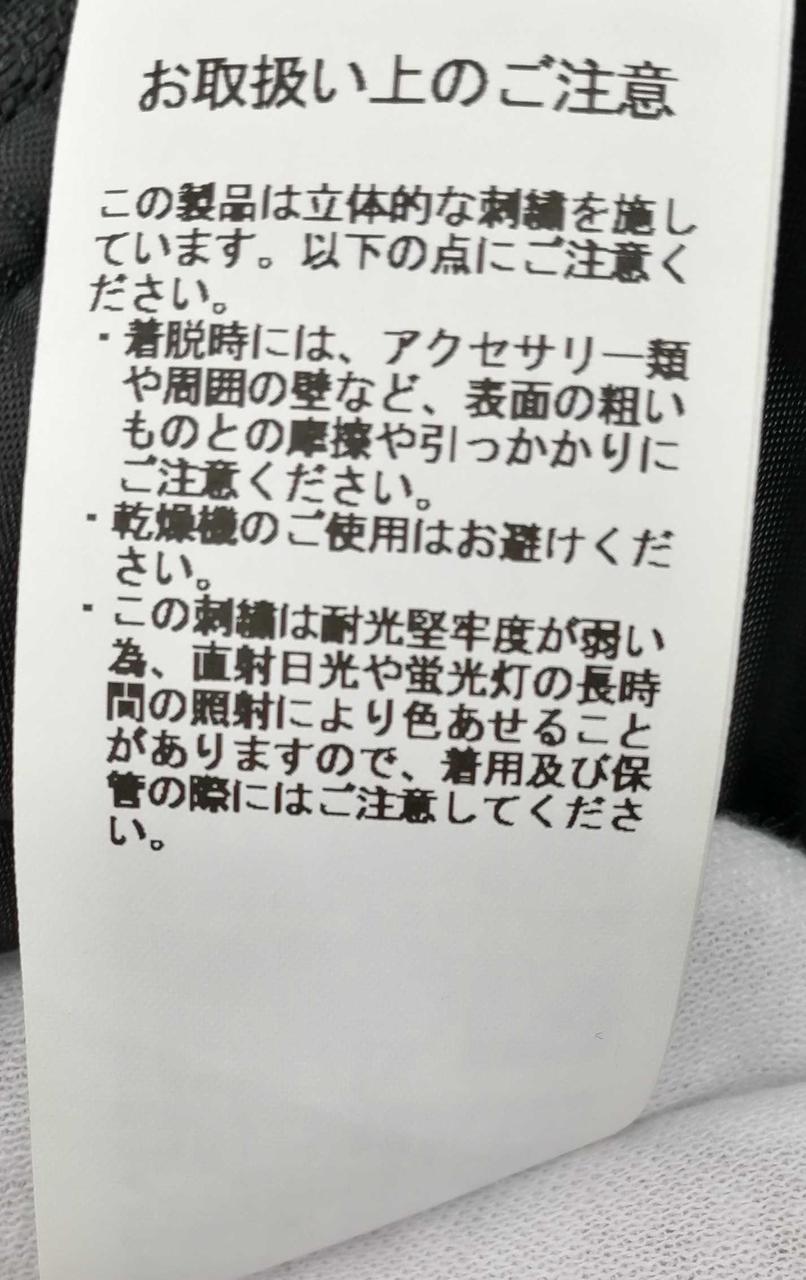 お取扱い上のご注意
この製品は立体的な刺繍を施し
ています。以下の点にご注意く
ださい。
・着脱時には、アクセサリー類
や周囲の壁など、表面の粗い
ものとの摩擦や引っかかりに
ご注意ください。
・乾燥機のご使用はお避けくだ
さい。
・この刺繍は耐光堅牢度が弱い
為、直射日光や蛍光灯の長時
間の照射により色あせること
がありますので、着用及び保
管の際にはご注意してくださ
い。